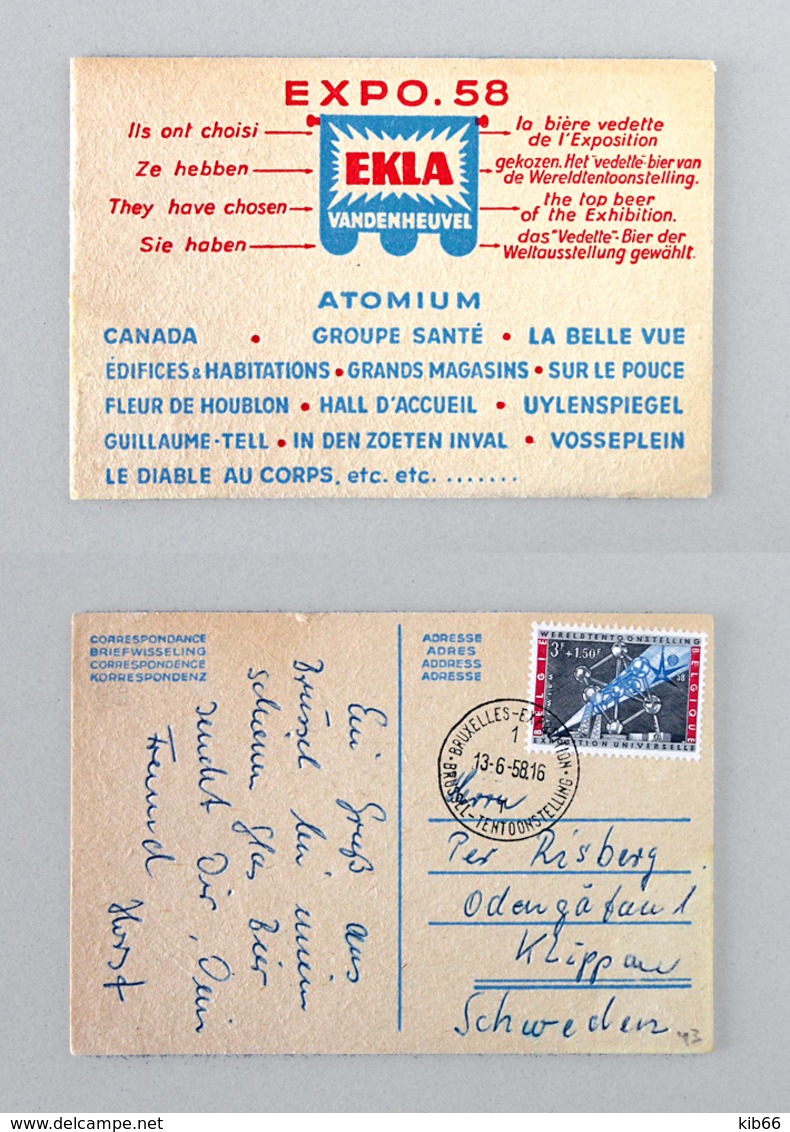 EXPO.58
Ils ont choisi la bière vedette
de l'Exposition
EKLA
Ze hebben gekozen. Het "vedette"-bier van
de Wereldtentoonstelling.
They have chosen the top beer
of the Exhibition.
VANDENHEUVEL
Sie haben das "Vedette"-Bier der
Weltausstellung gewählt.
ATOMIUM
CANADA • GROUPE SANTÉ • LA BELLE VUE
ÉDIFICES & HABITATIONS • GRANDS MAGASINS • SUR LE POUCE
FLEUR DE HOUBLON • HALL D'ACCUEIL • UYLENSPIEGEL
GUILLAUME-TELL • IN DEN ZOETEN INVAL • VOSSEPLEIN
LE DIABLE AU CORPS, etc. etc. .......
CORRESPONDANCE
BRIEFWISSELING
CORRESPONDENCE
KORRESPONDENZ
ADRESSE
ADRES
ADDRESS
ADRESSE
WERELDTENTOONSTELLING
3F +1.50F
BELGIE
BELGIQUE
58
EXPOSITION UNIVERSELLE
BRUXELLES-EXPOSITION
1
13-6-58.16
BRUSSEL-TENTOONSTELLING
Ein Gruß aus
Brüssel bei einem
schönen Glas Bier
sendet Dir, Dein
Freund
Horst
Herrn
Per Risberg
Odengatan 1
Klippan
Schweden
delcampe.net
kib66